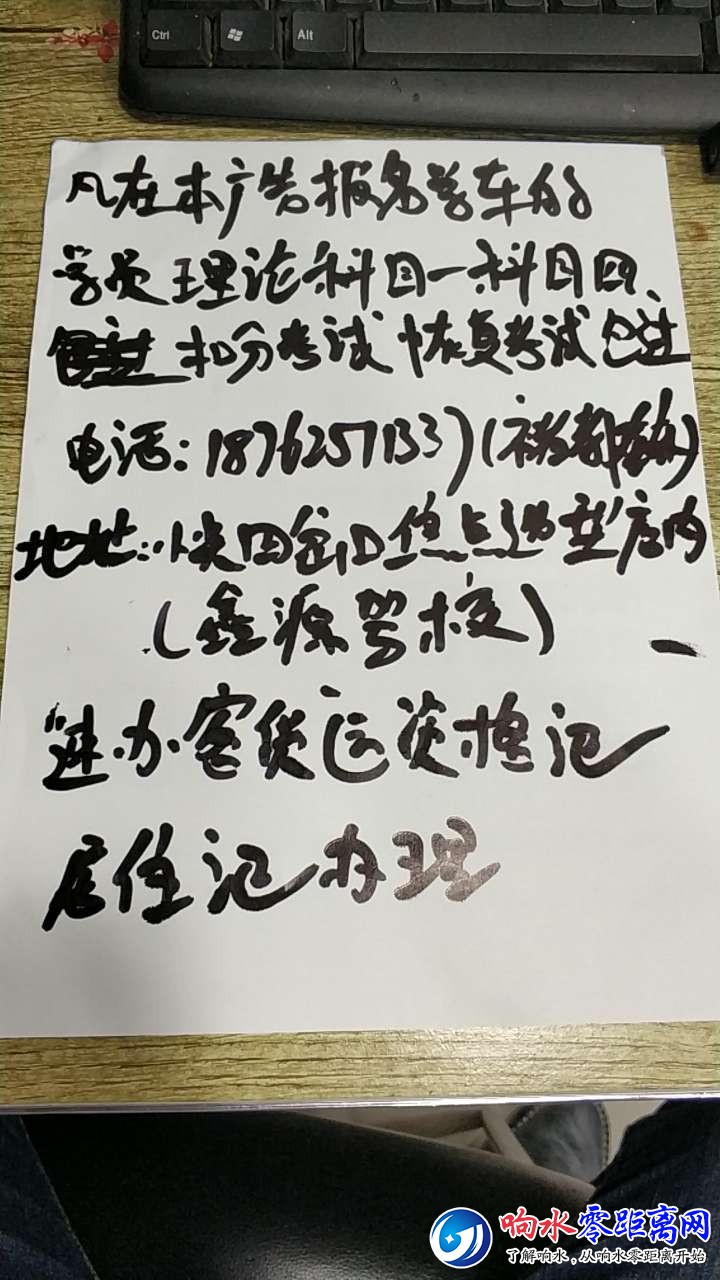 Ctrl Alt
凡在本广告报名学车的
学员理论科目一科目四、
扣分考试恢复考试包过
电话:18762571337(祁教练)
地址:小尖四岔口焦点造型店内
(鑫源驾校)
速办客货运资格证
居住证办理
响水零距离网
了解响水,从响水零距离开始